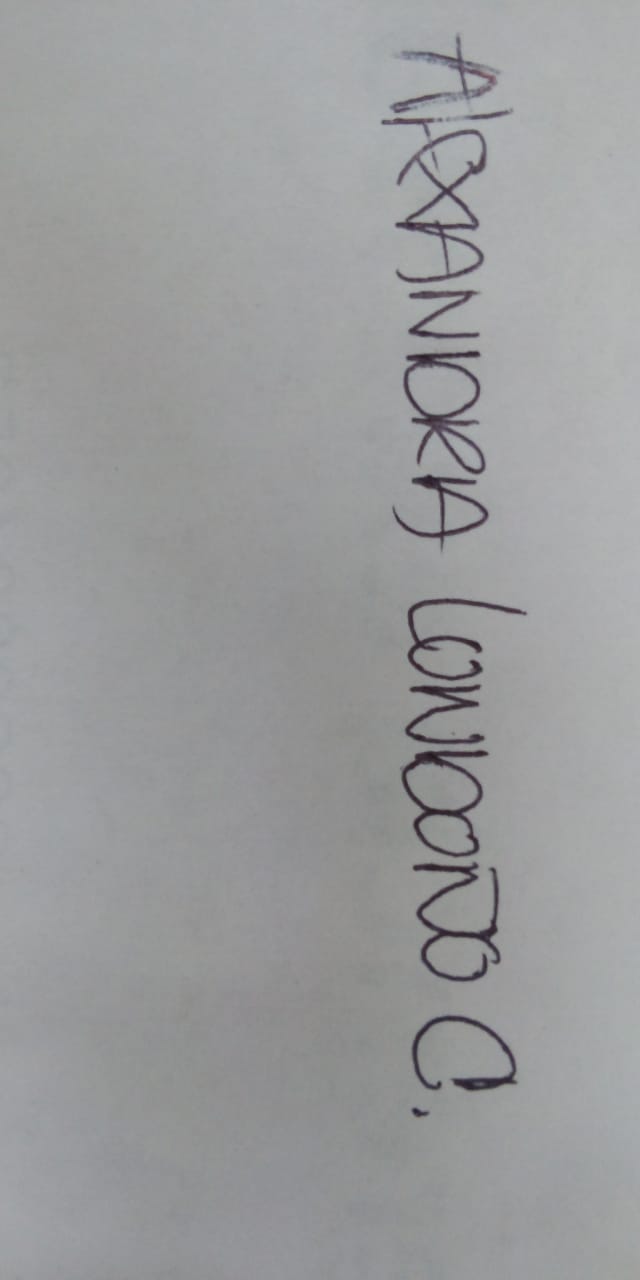 AlexANDRA LONDOÑO C.